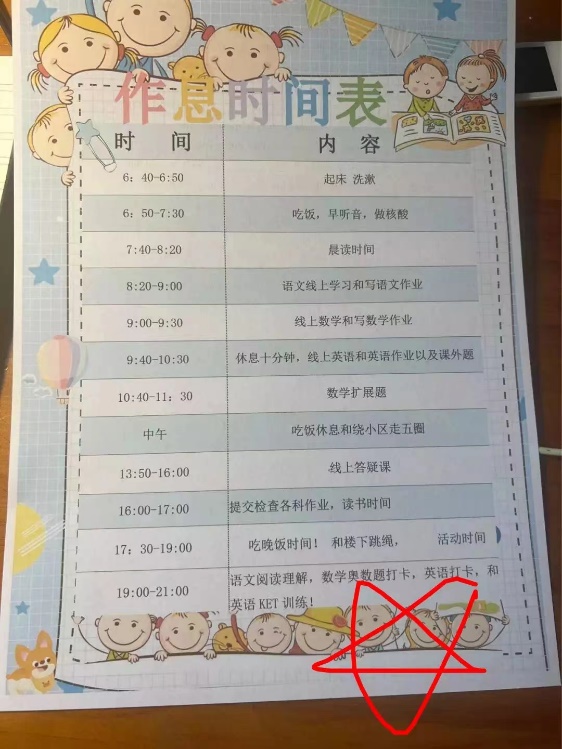 作息时间表
时 间 内 容
6: 40-6:50 起床 洗漱
6: 50-7:30 吃饭，早听音，做核酸
7:40-8:20 晨读时间
8:20-9:00 语文线上学习和写语文作业
9:00-9:30 线上数学和写数学作业
9:40-10:30 休息十分钟，线上英语和英语作业以及课外题
10:40-11: 30 数学扩展题
中午 吃饭休息和绕小区走五圈
13:50-16:00 线上答疑课
16:00-17:00 提交检查各科作业，读书时间
17: 30-19:00 吃晚饭时间！ 和楼下跳绳， 活动时间
19:00-21:00 语文阅读理解，数学奥数题打卡，英语打卡，和
英语 KET 训练！